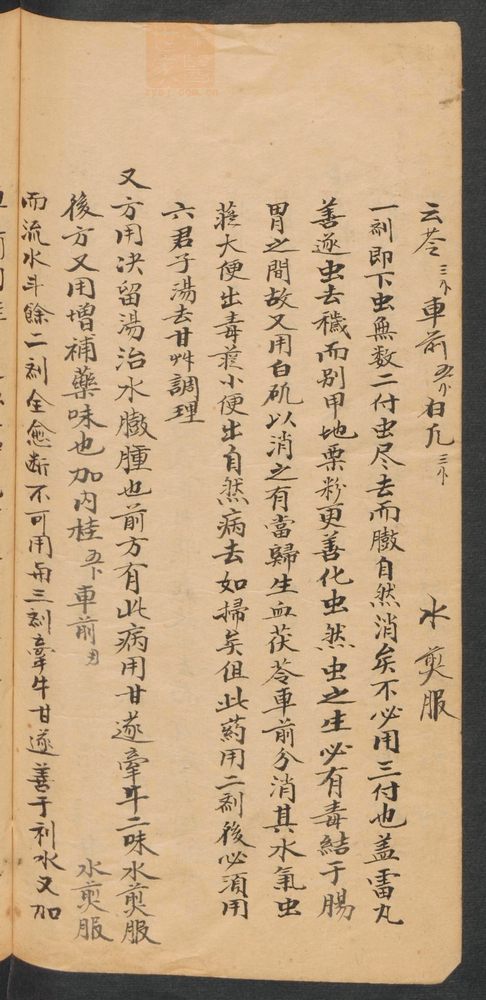 云苓三个車前五个白凡三个 水煎服
一剤即下虫無数二付虫尽去而臌自然消矣不必用三付也盖雷丸
善逐虫去穢而别甲地栗粉更善化虫然虫之生必有毒結于腸
胃之間故又用白矾以消之有當歸生血茯苓車前分消其水氣虫
從大便出毒從小便出自然病去如掃矣但此药用二剤後必須用
六君子湯去甘艸調理
又方用决留湯治水臌腫也前方有此病用甘遂牽牛二味水煎服
後方又用增補藥味也加内桂五个車前 水煎服
而流水斗餘二剤全愈断不可用与三剤牽牛甘遂善于利水又加